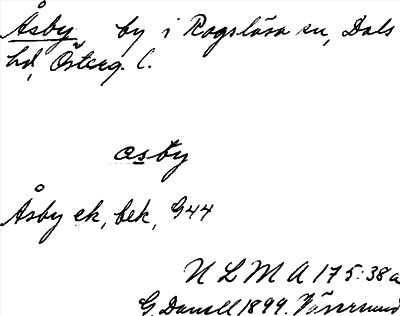 Åsby, by i Rogslösa sn, Dals
hd, Österg. l.
åsby
Åsby ek, bek, G44
ULMA 175:38a
G. Danell 1899. Väversunda